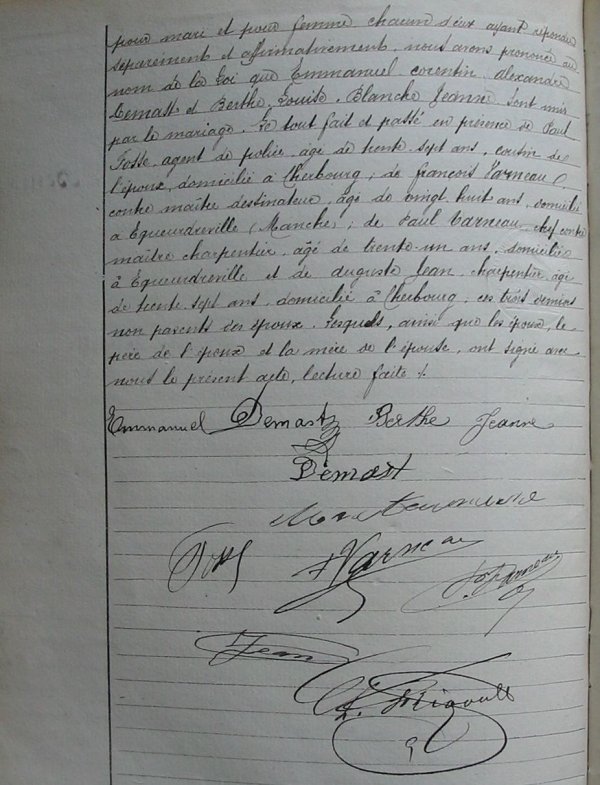 pour mari et pour femme chacun d'eux ayant répondu
séparément et affirmativement, nous avons prononcé au
nom de la Loi que Emmanuel, corentin, alexandre
Demast et Berthe, Louise, Blanche Jeanne sont unis
par le mariage. Le tout fait et passé en présence de Paul
Fosse, agent de police, âgé de trente sept ans, cousin de
l'époux, domicilié à Cherbourg; de françois Varneau,
contre maître dessinateur, âgé de vingt huit ans, domicilié
à Equeurdreville (Manche); de Paul Varneau, chef contre
maître charpentier, âgé de trente-un ans, domicilié
à Equeurdreville et de auguste Jean, charpentier, âgé
de trente sept ans, domicilié à Cherbourg, ces trois derniers
non parents des époux. Lesquels, ainsi que les époux, le
père de l'époux et la mère de l'épouse, ont signé avec
nous le présent acte, lecture faite ./.
Emmanuel Demast Berthe Jeanne
Demast
Fosse F Varneau P. Varneau
Jean